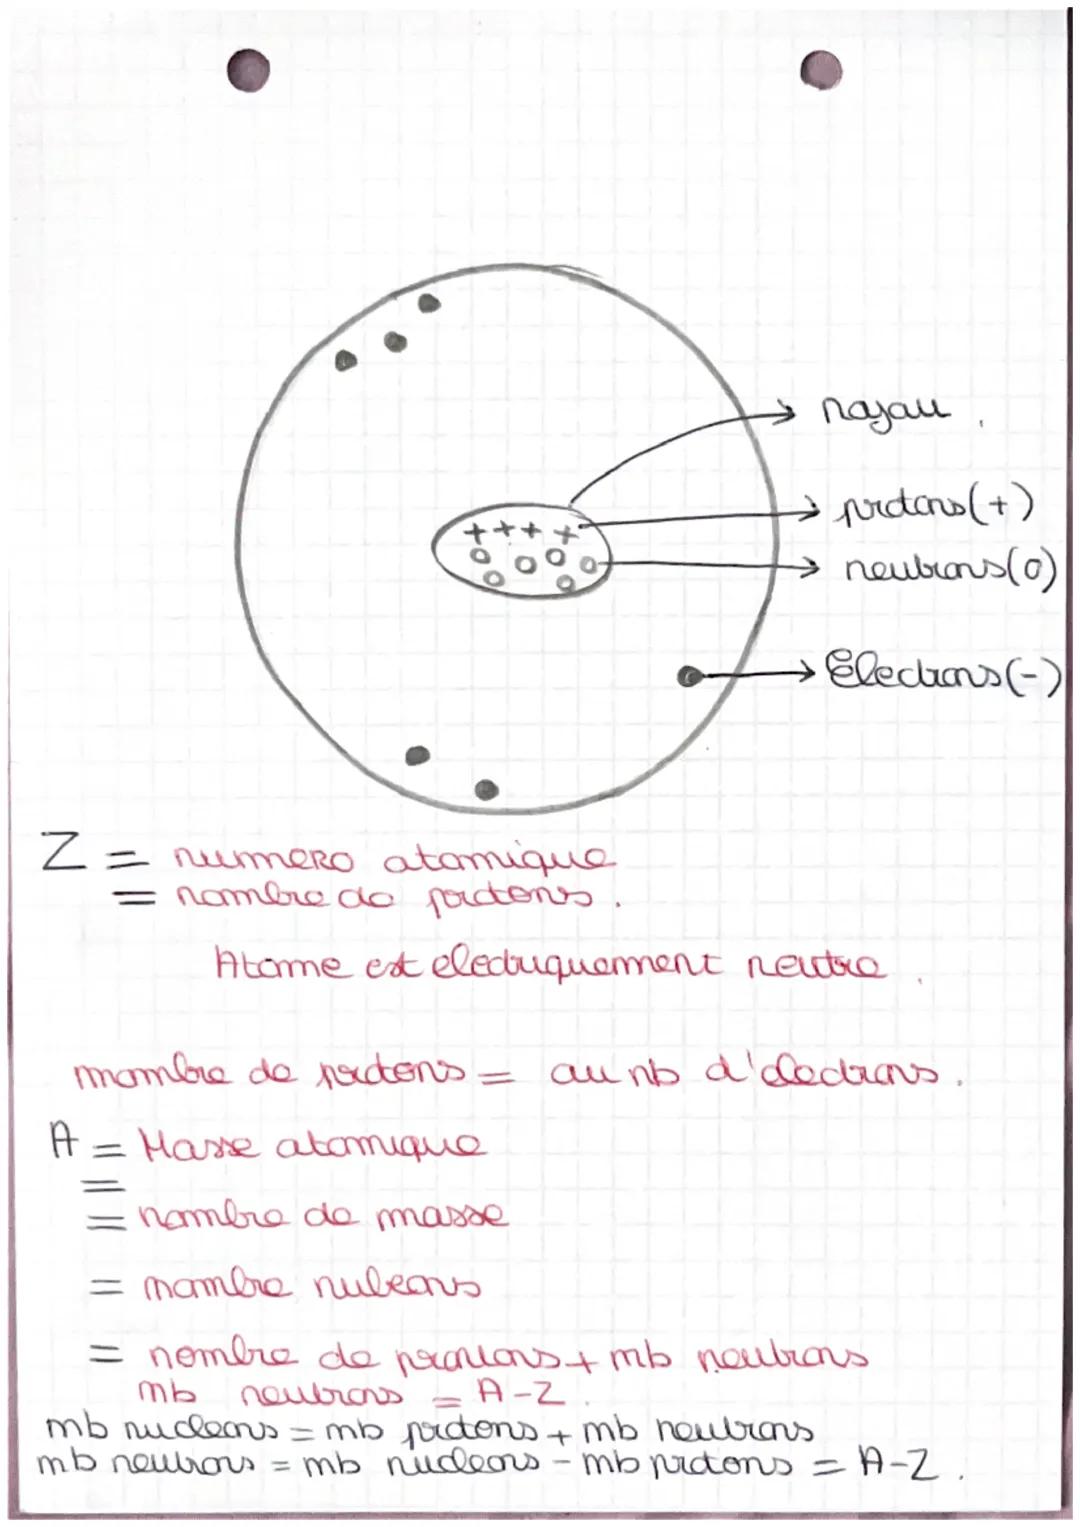 noyau.
protons(+)
neutrons(0)
Électrons(-)
Z = numero atomique
= nombre de protons.
Atome est electriquement neutre.
nombre de protons = au nb d'electrons.
A = Masse atomique
=
= nombre de masse
= nombre nucleons
= nombre de protons + nb neutrons
nb neutrons = A-Z.
nb nucleons = nb protons + nb neutrons
nb neutrons = nb nucleons - nb protons = A-Z.